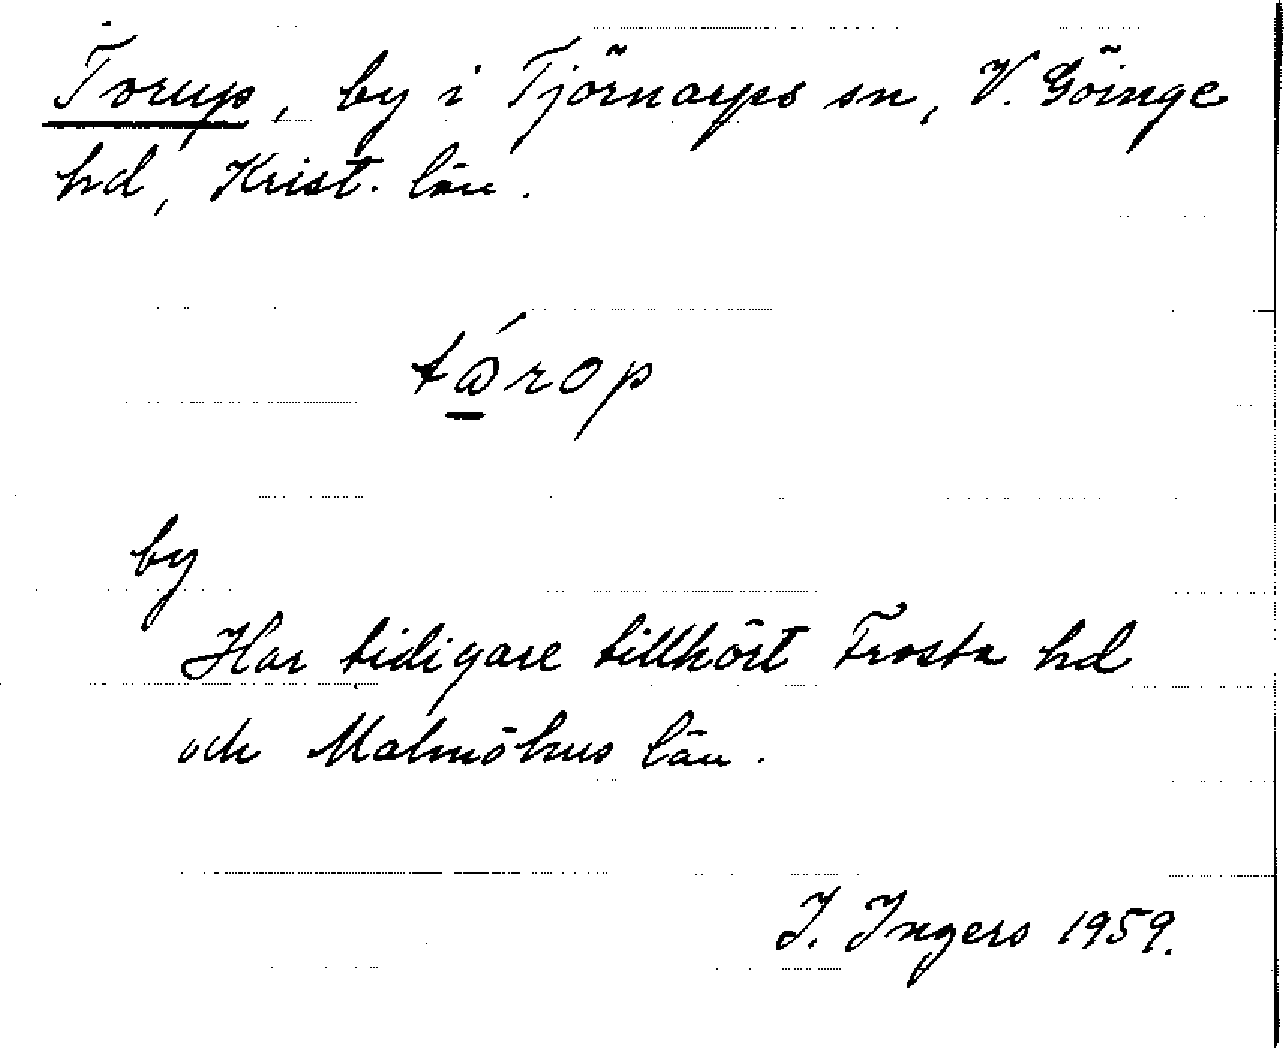 Torup, by i Tjörnarps sn, V. Göinge
hd, Krist. län.
tårop
by
Har tidigare tillhört Frosta hd
och Malmöhus län.
I. Ingers 1959.